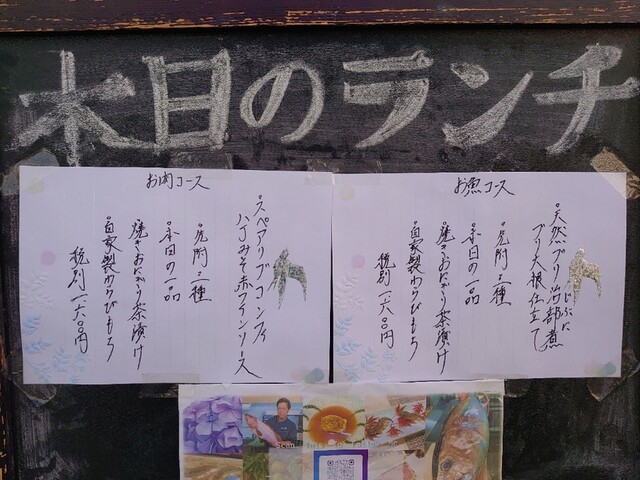 本日のランチ
お魚コース
天然ブリ治部煮
じぶに
ブリ大根仕立て
先附二種
本日の一品
焼きおにぎり茶漬け
自家製わらびもち
税別一六〇〇円
お肉コース
スペアリブコンフィ
八丁みそ赤ワインソース
先附二種
本日の一品
焼きおにぎり茶漬け
自家製わらびもち
税別一六〇〇円